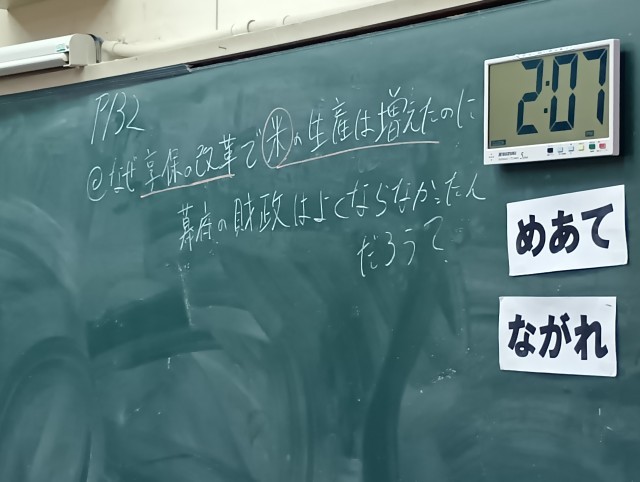 P132
@なぜ享保の改革で米の生産は増えたのに
幕府の財政はよくならなかったん
だろう?
2:07
めあて
ながれ